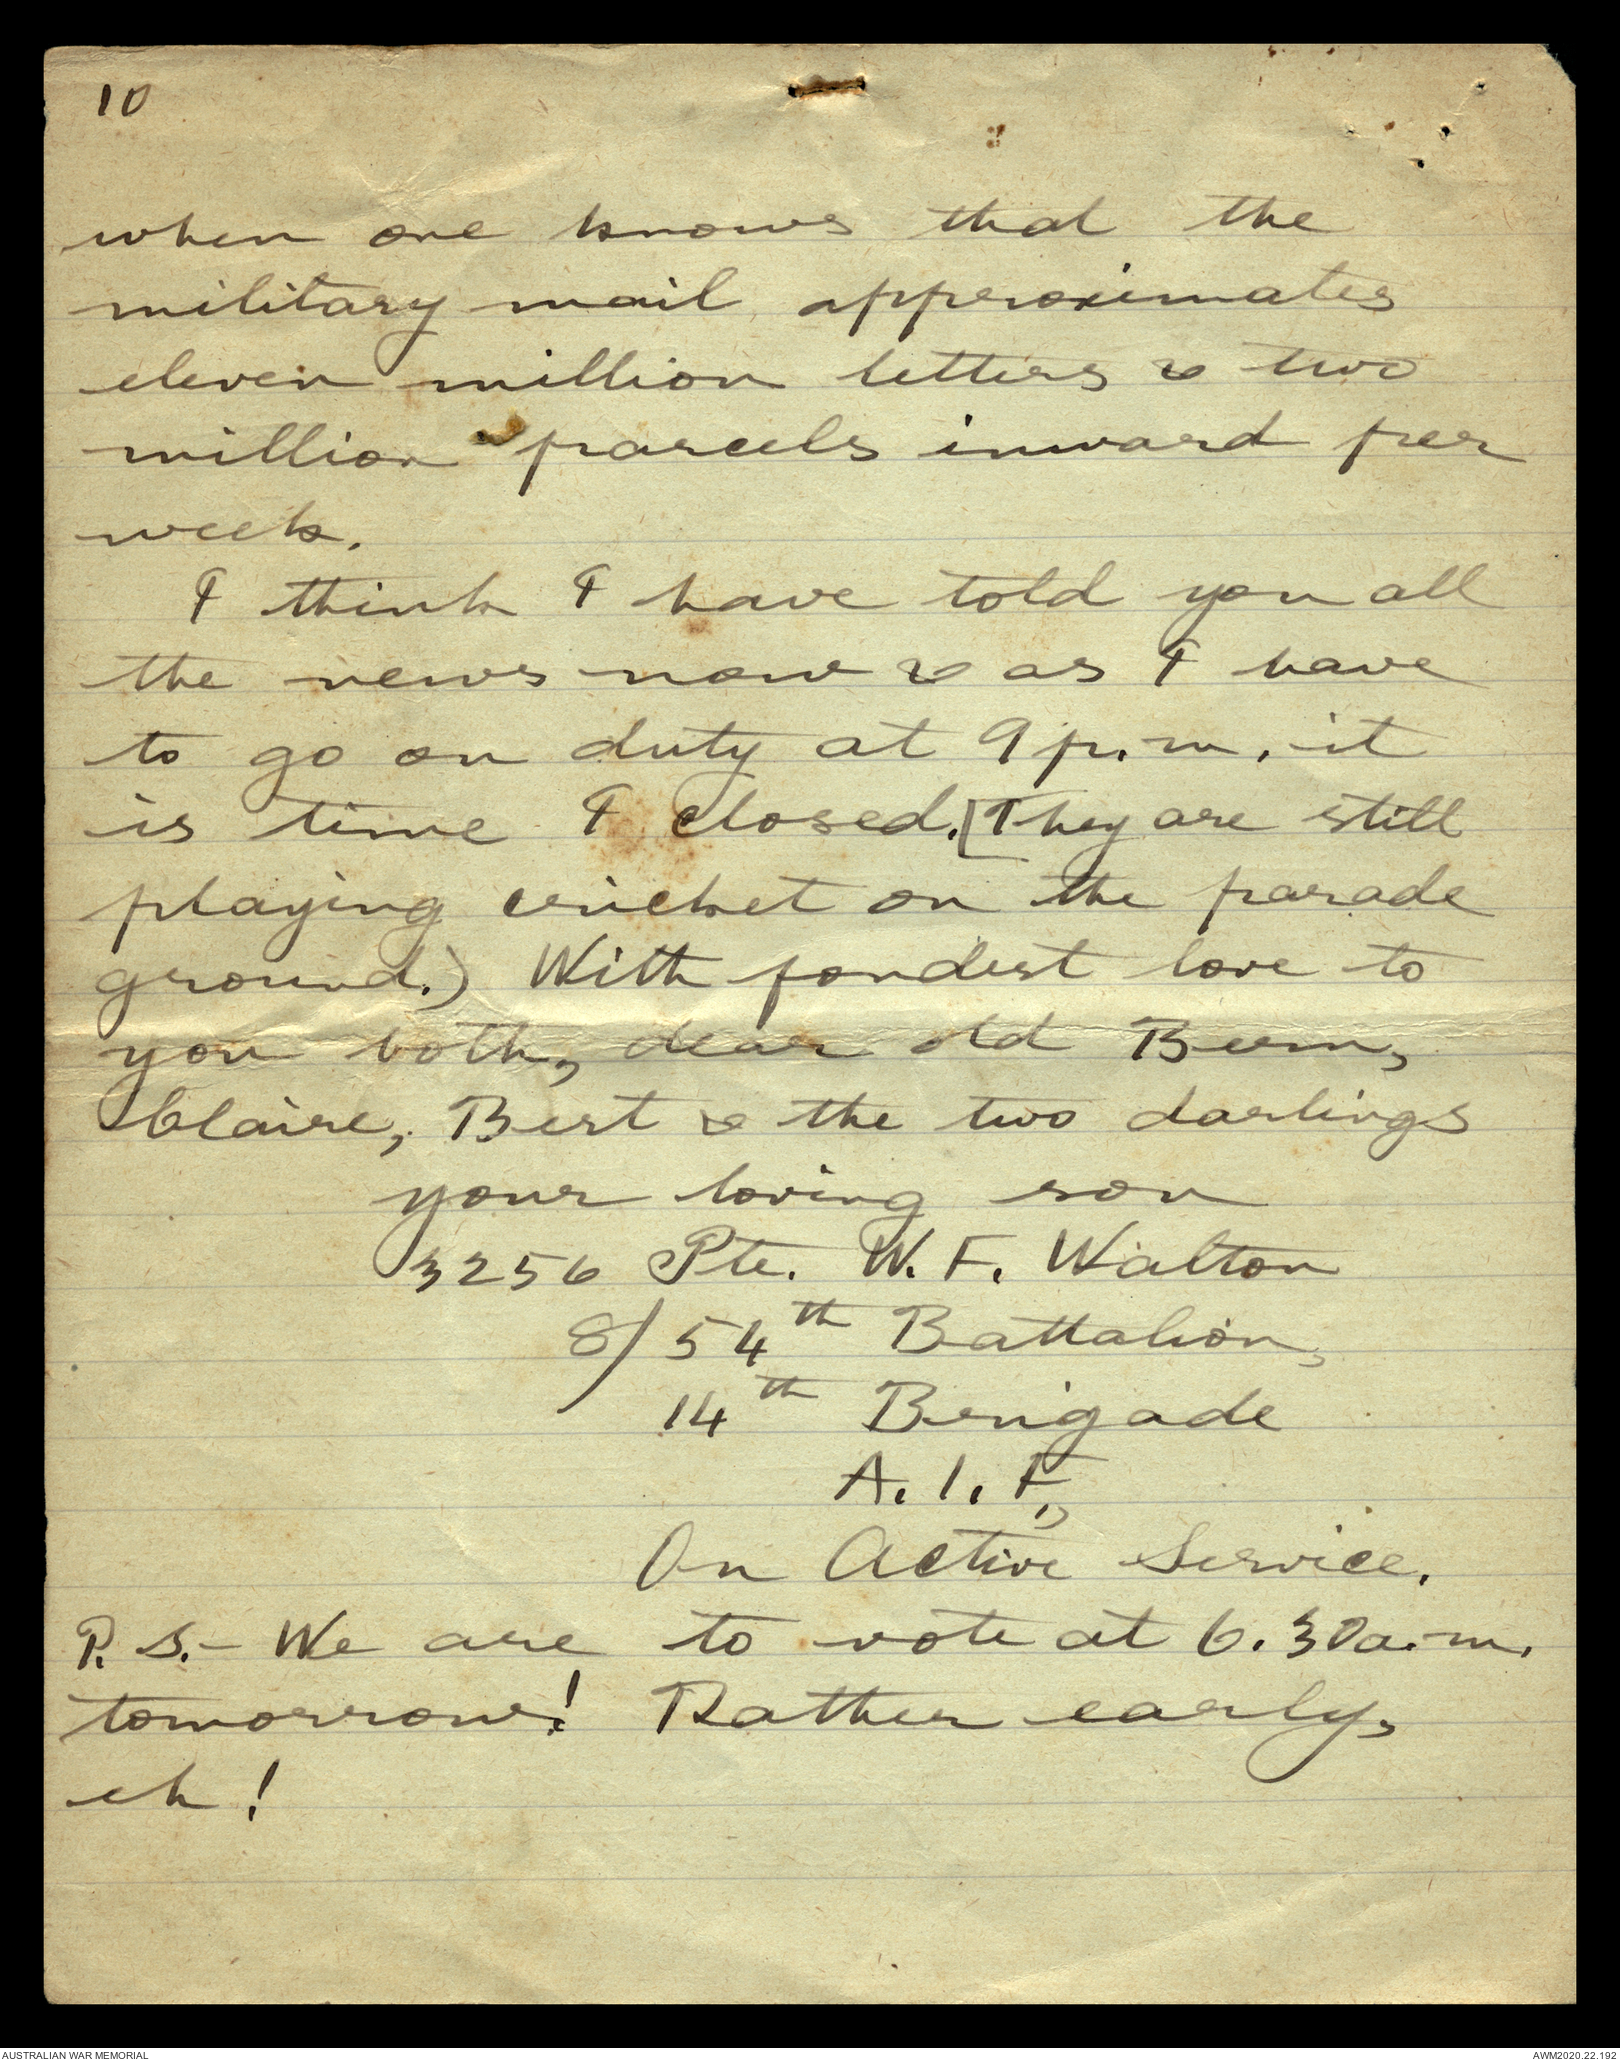 10
when one knows that the
military mail approximates
eleven million letters & two
million parcels inward per
week.
I think I have told you all
the news now & as I have
to go on duty at 9 p.m. it
is time I closed. [They are still
playing cricket on the parade
ground.) With fondest love to
you both, dear old Bern,
Claire, Bert & the two darlings
your loving son
3256 Pte. W. F. Walton
8/54th Battalion,
14th Brigade
A. I. F.,
On Active Service.
P. S. - We are to vote at 6.30 a.m.
tomorrow! Rather early,
eh!
AUSTRALIAN WAR MEMORIAL
AWM2020.22.192